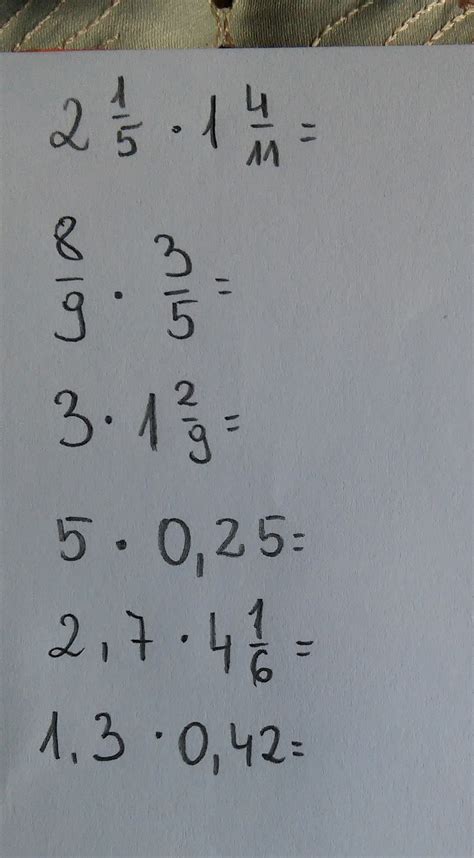 2 1/5 · 1 4/11 =
8/9 · 3/5 =
3 · 1 2/9 =
5 · 0,25 =
2,7 · 4 1/6 =
1,3 · 0,42 =